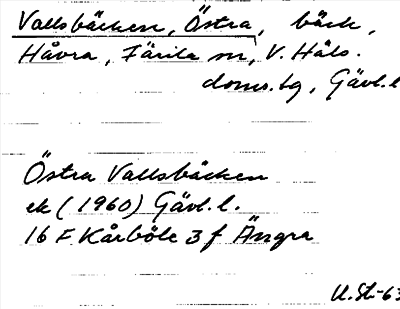 Vallsbäcken, Östra, bäck,
Håvra, Färila sn, V. Häls.
doms.tg, Gävl.l
Östra Vallsbäcken
ek (1960) Gävl.l.
16 F Kårböle 3 f Ängra
U.St-63